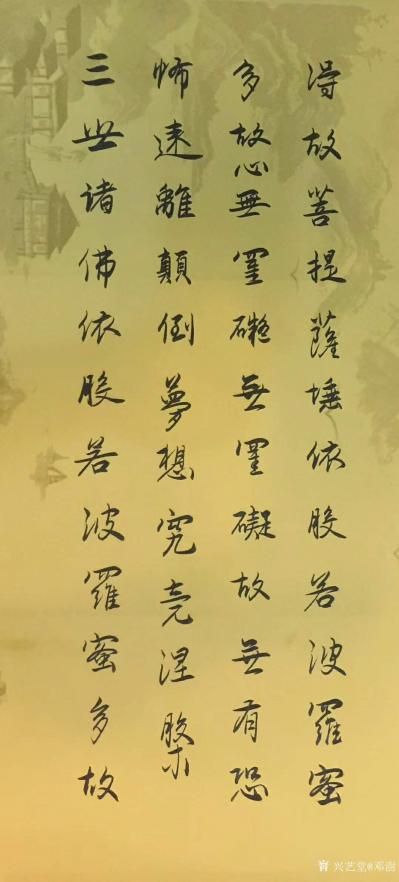 得故菩提薩埵依般若波羅蜜
多故心無罣礙無罣礙故無有恐
怖遠離顛倒夢想究竟涅槃
三世诸佛依般若波羅蜜多故
兴艺堂@邓澍